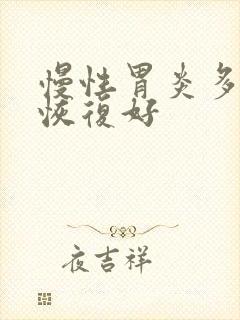 慢性胃炎多
恢復好
夜吉祥